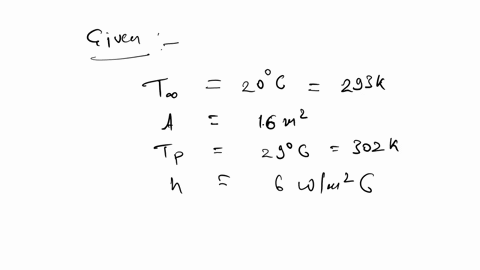 Given :-
T∞ = 20°C = 293k
A = 1.6 m²
Tp = 29°C = 302k
h = 6 w/m²C